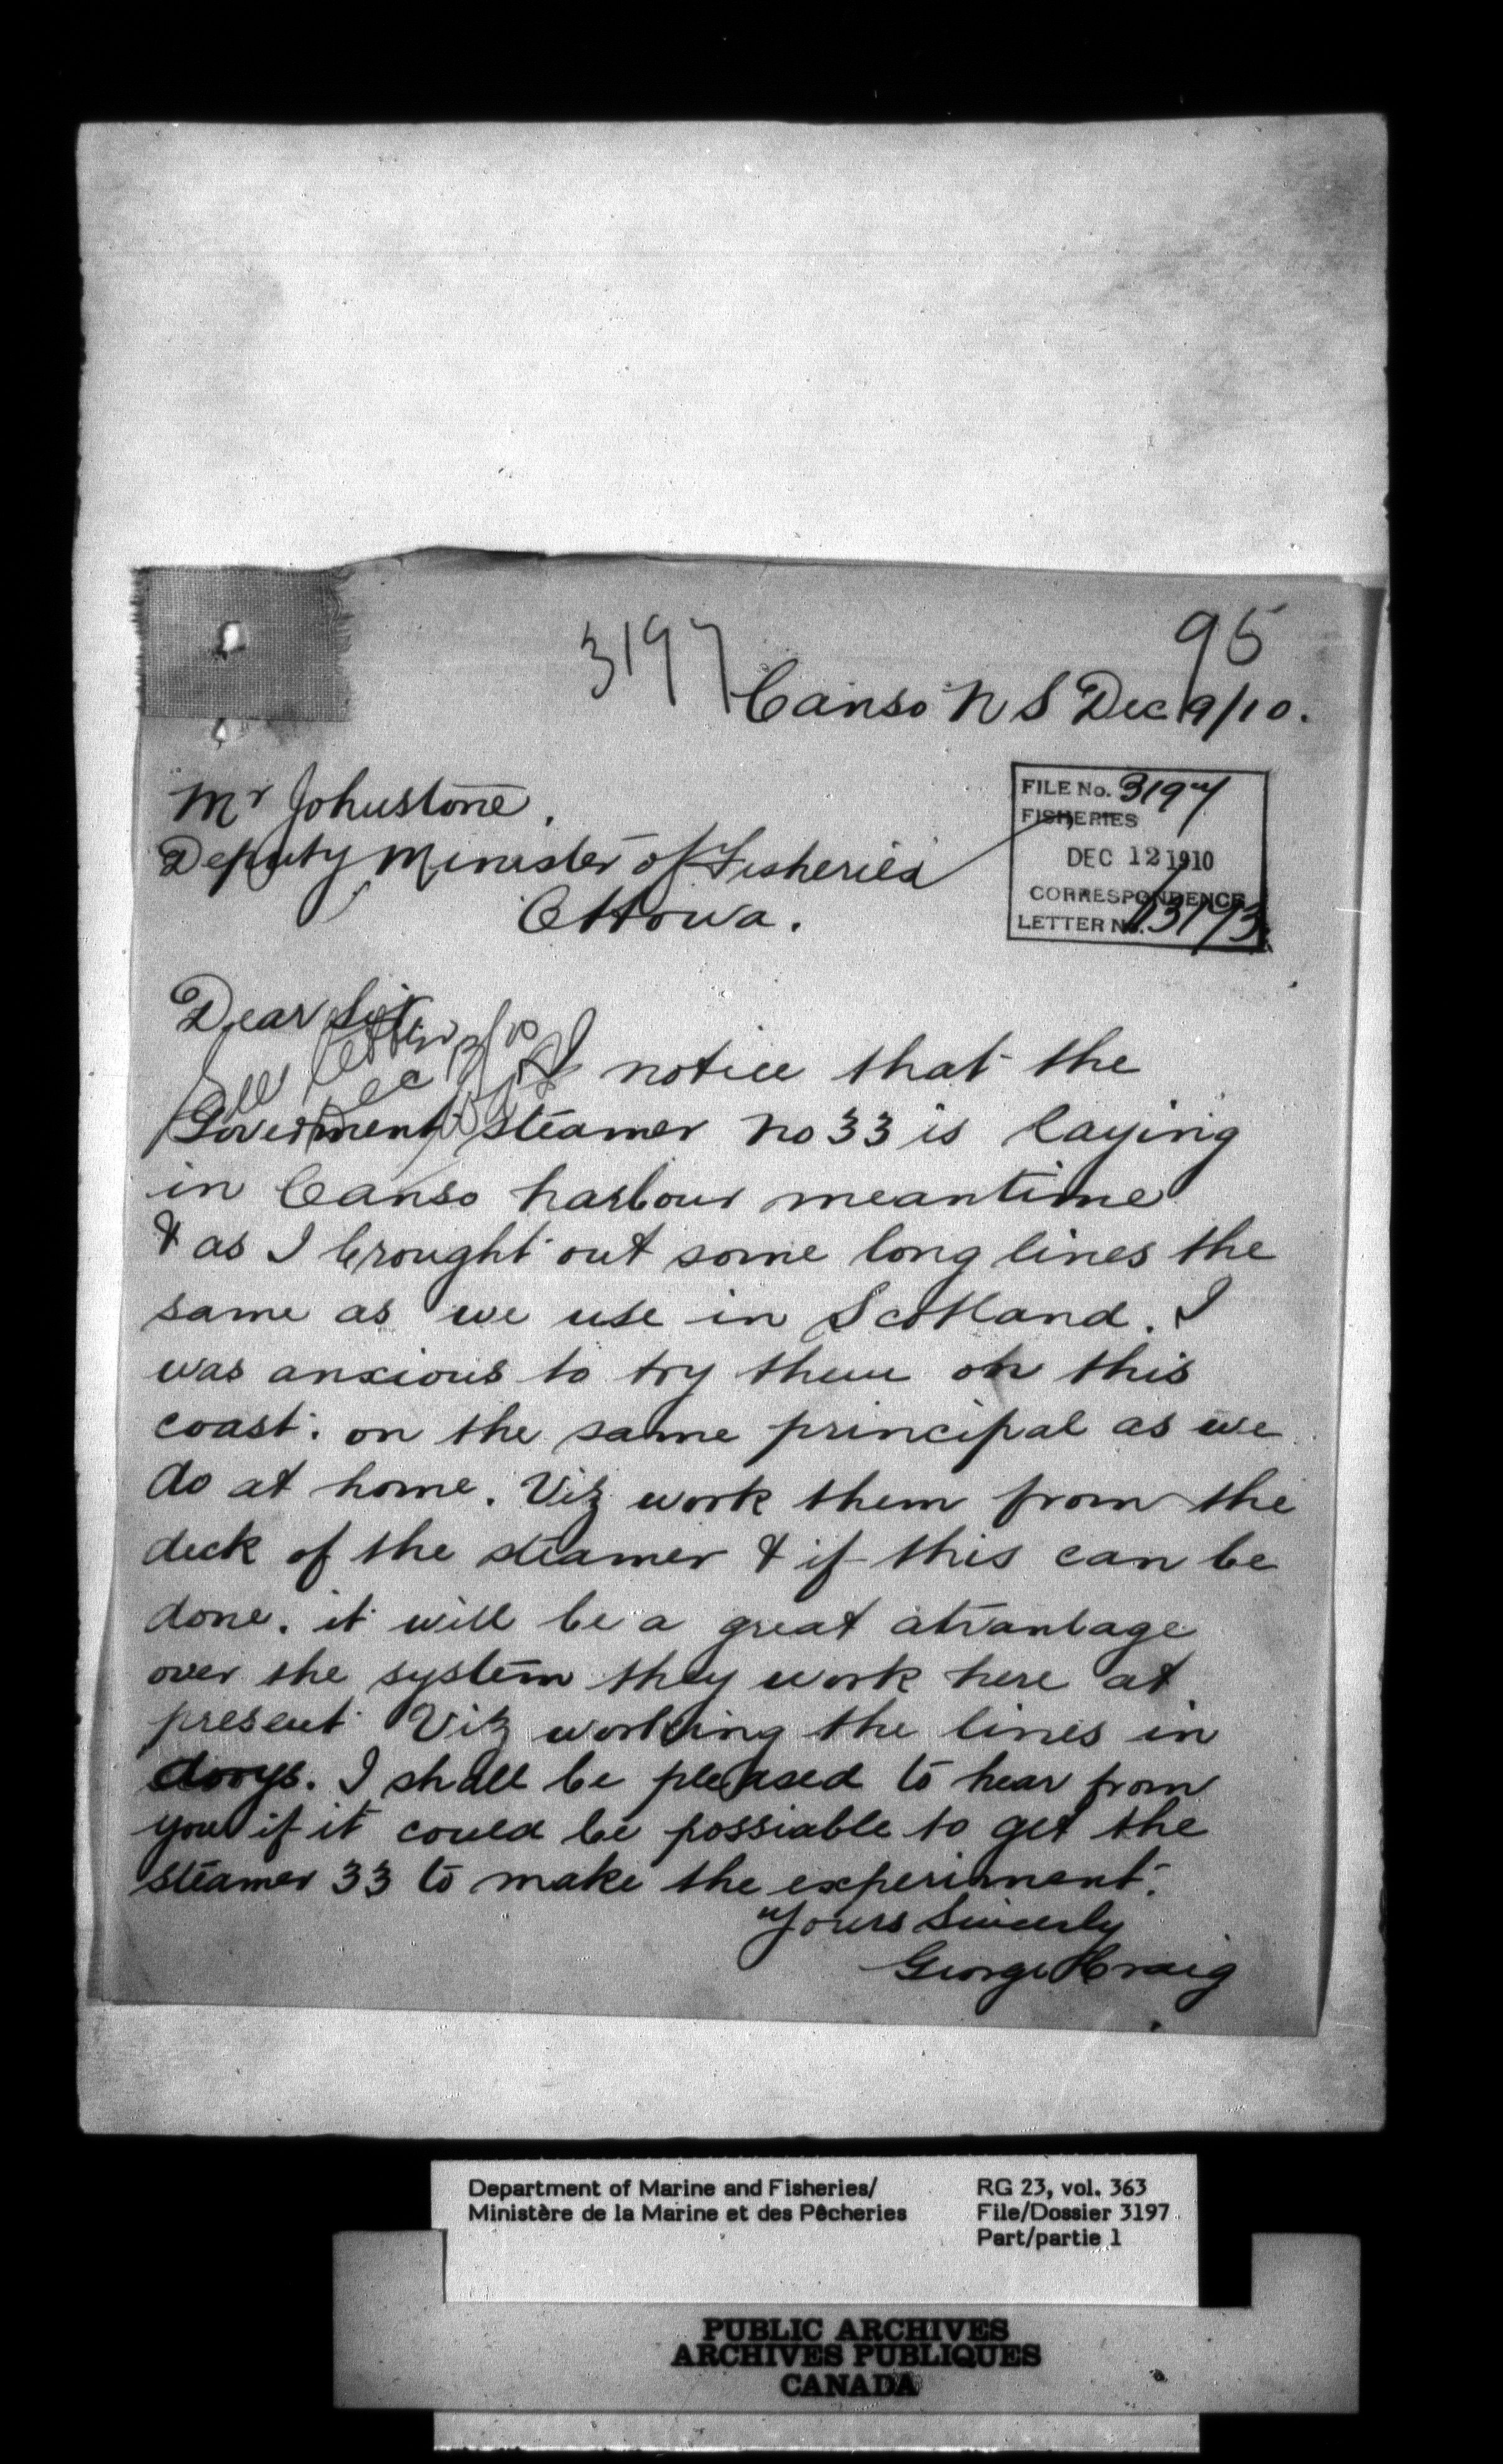 3197
95
Canso N S Dec 9/10.
Mr Johnstone.
Deputy Minister of Fisheries
Ottowa.
FILE No. 3197
FISHERIES
DEC 12 1910
CORRESPONDENCE
LETTER No.
Dear Sir
See letter
Dec
I notice that the
Goverment steamer No 33 is laying
in Canso harbour meantime
& as I brought out some long lines the
same as we use in Scotland. I
was anxious to try them on this
coast. on the same principal as we
do at home. Viz work them from the
deck of the steamer & if this can be
done. it will be a great atvantage
over the system they work here at
present Viz working the lines in
dorys. I shall be pleased to hear from
you if it could be possiable to get the
steamer 33 to make the experiment.
Yours Sincerly
George Craig
Department of Marine and Fisheries/
Ministère de la Marine et des Pêcheries
RG 23, vol. 363
File/Dossier 3197
Part/partie 1
PUBLIC ARCHIVES
ARCHIVES PUBLIQUES
CANADA